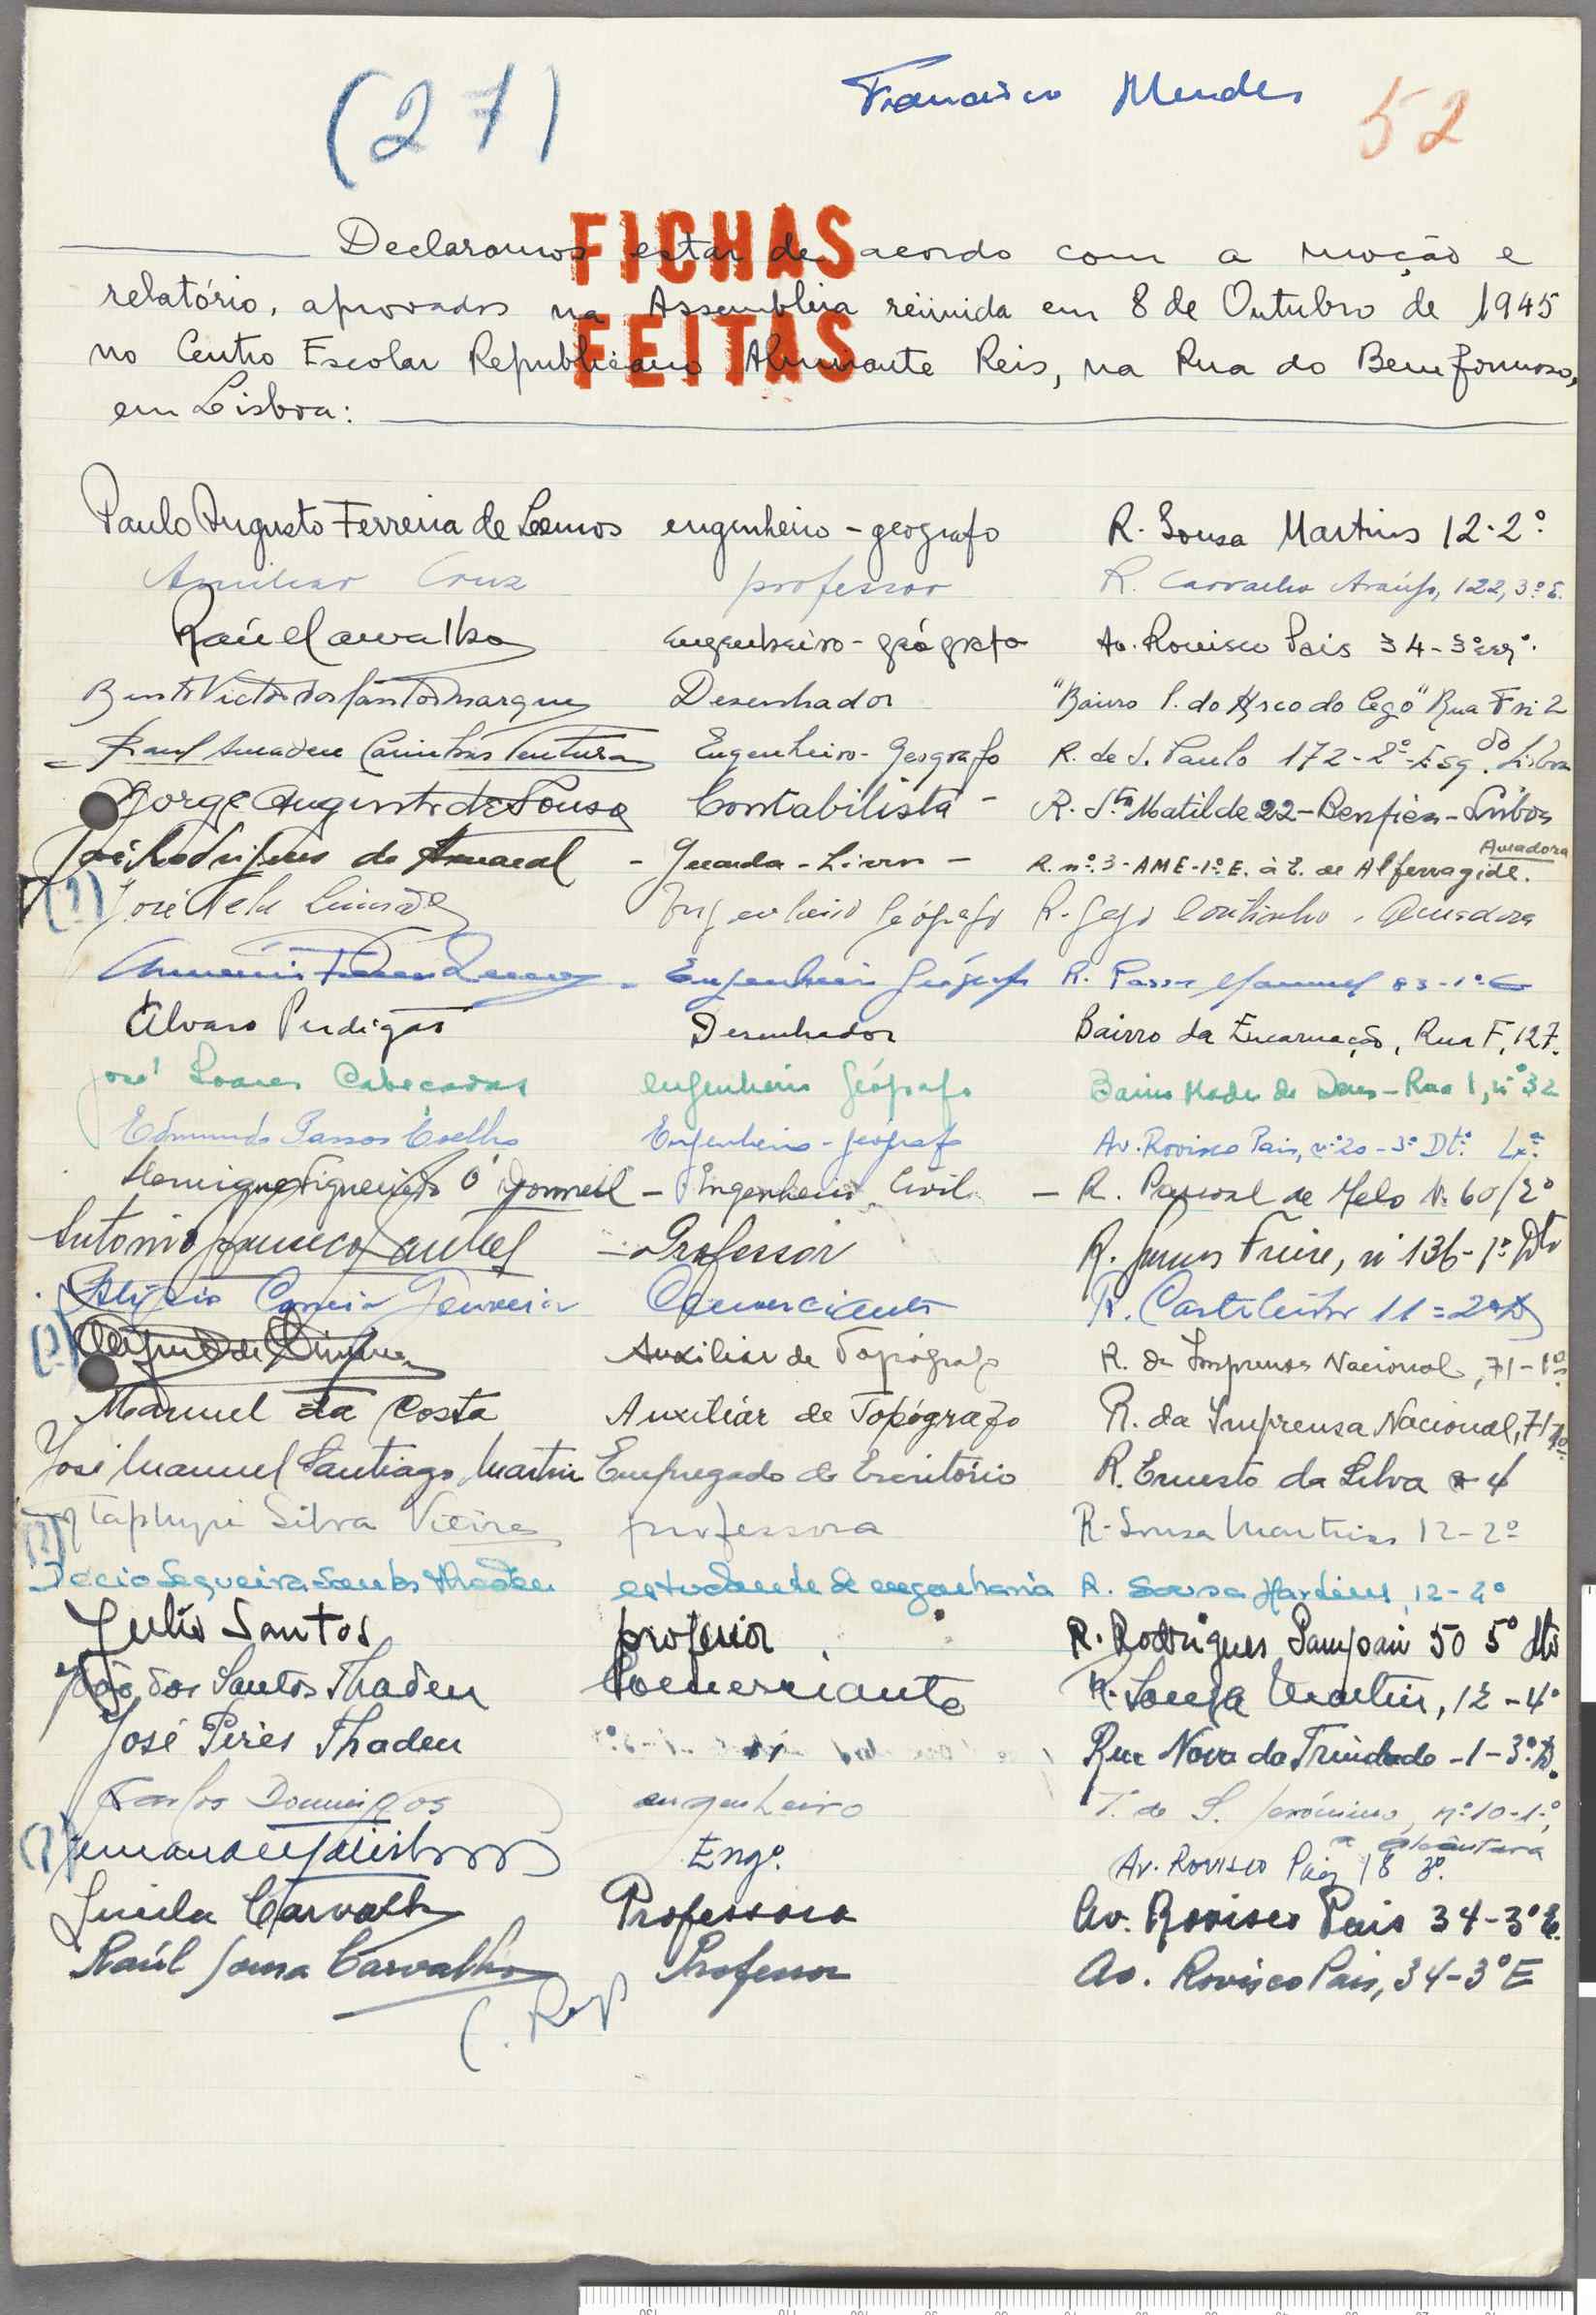 (27) Francisco Mendes 52
FICHAS
FEITAS
Declaramos estar de acordo com a moção e
relatório, aprovados na Assembleia reúnida em 8 de Outubro de 1945
no Centro Escolar Republicano Almirante Reis, na Rua do Bemformoso,
em Lisboa:
Paulo Augusto Ferreira de Lemos engenheiro-geografo R. Sousa Martins 12-2º
Amilcar Cruz professor R. Carvalho Araújo, 122, 3º E.
Raúl Carvalho Engenheiro-geógrafo Av. Rovisco Pais 34-3º esqº.
Bento Victor dos Santos Marques Desenhador "Bairro S. do Arco do Cego" Rua
Raul Amadeu Ventura Engenheiro-Geografo R. de S. Paulo 172-2º-Esqdo. Lisboa
Jorge Augusto de Sousa Contabilista - R. Sta Matilde 22-Benfica-Lisboa
José Rodrigues do Amaral - Guarda-Livros - R. nº 3-AME-1º E. à E. de Alfernagide. Amadora
(?) José Engenheiro Geógrafo R. Gago Coutinho. Amadora
Engenheiro Geógrafo R. Passos Manuel 83-1º E
Alvaro Perdigão Desenhador Bairro da Encarnação, Rua F, 127.
José Soares Cabeçadas engenheiro geógrafo Bairro Madre de Deus-Rua 1, nº 32
Edmundo Passos Coelho Engenheiro-geógrafo Av. Rovisco Pais, nº 20-3º Dtº Lxª
Henrique Figueiredo O'Donnell - Engenheiro Civil - R. Pascoal de Melo Nº 60/2º
Antonio - Professor R. Gomes Freire, nº 136-1º Dto
Correia Comerciante R. Castilho 11=2º D
(?) Auxiliar de Topógrafo R. da Imprensa Nacional, 71-1º
Manuel da Costa Auxiliár de Topógrafo R. da Imprensa Nacional, 71
José Manuel Santiago Martins Empregado de Escritório R. Ernesto da Silva 4
Silva Vieira professora R. Sousa Martins 12-2º
Decio Sequeira Santos Thaden estudante de engenharia R. Sousa Martins, 12-4º
Julio Santos professor R. Rodrigues Sampaio 50 5º dto
João dos Santos Thaden Comerciante R. Sousa Martins, 12-4º
José Pires Thaden " Rua Nova da Trindade-1-3º D.
Carlos Domingos engenheiro T. de S. Jerónimo, nº 10-1º, a alcântara
(?) Engº. Av. Rovisco Pais 18 3º.
Lucila Carvalho Professora Av. Rovisco Pais 34-3º E.
Raúl Carvalho Professor Av. Rovisco Pais, 34-3º E